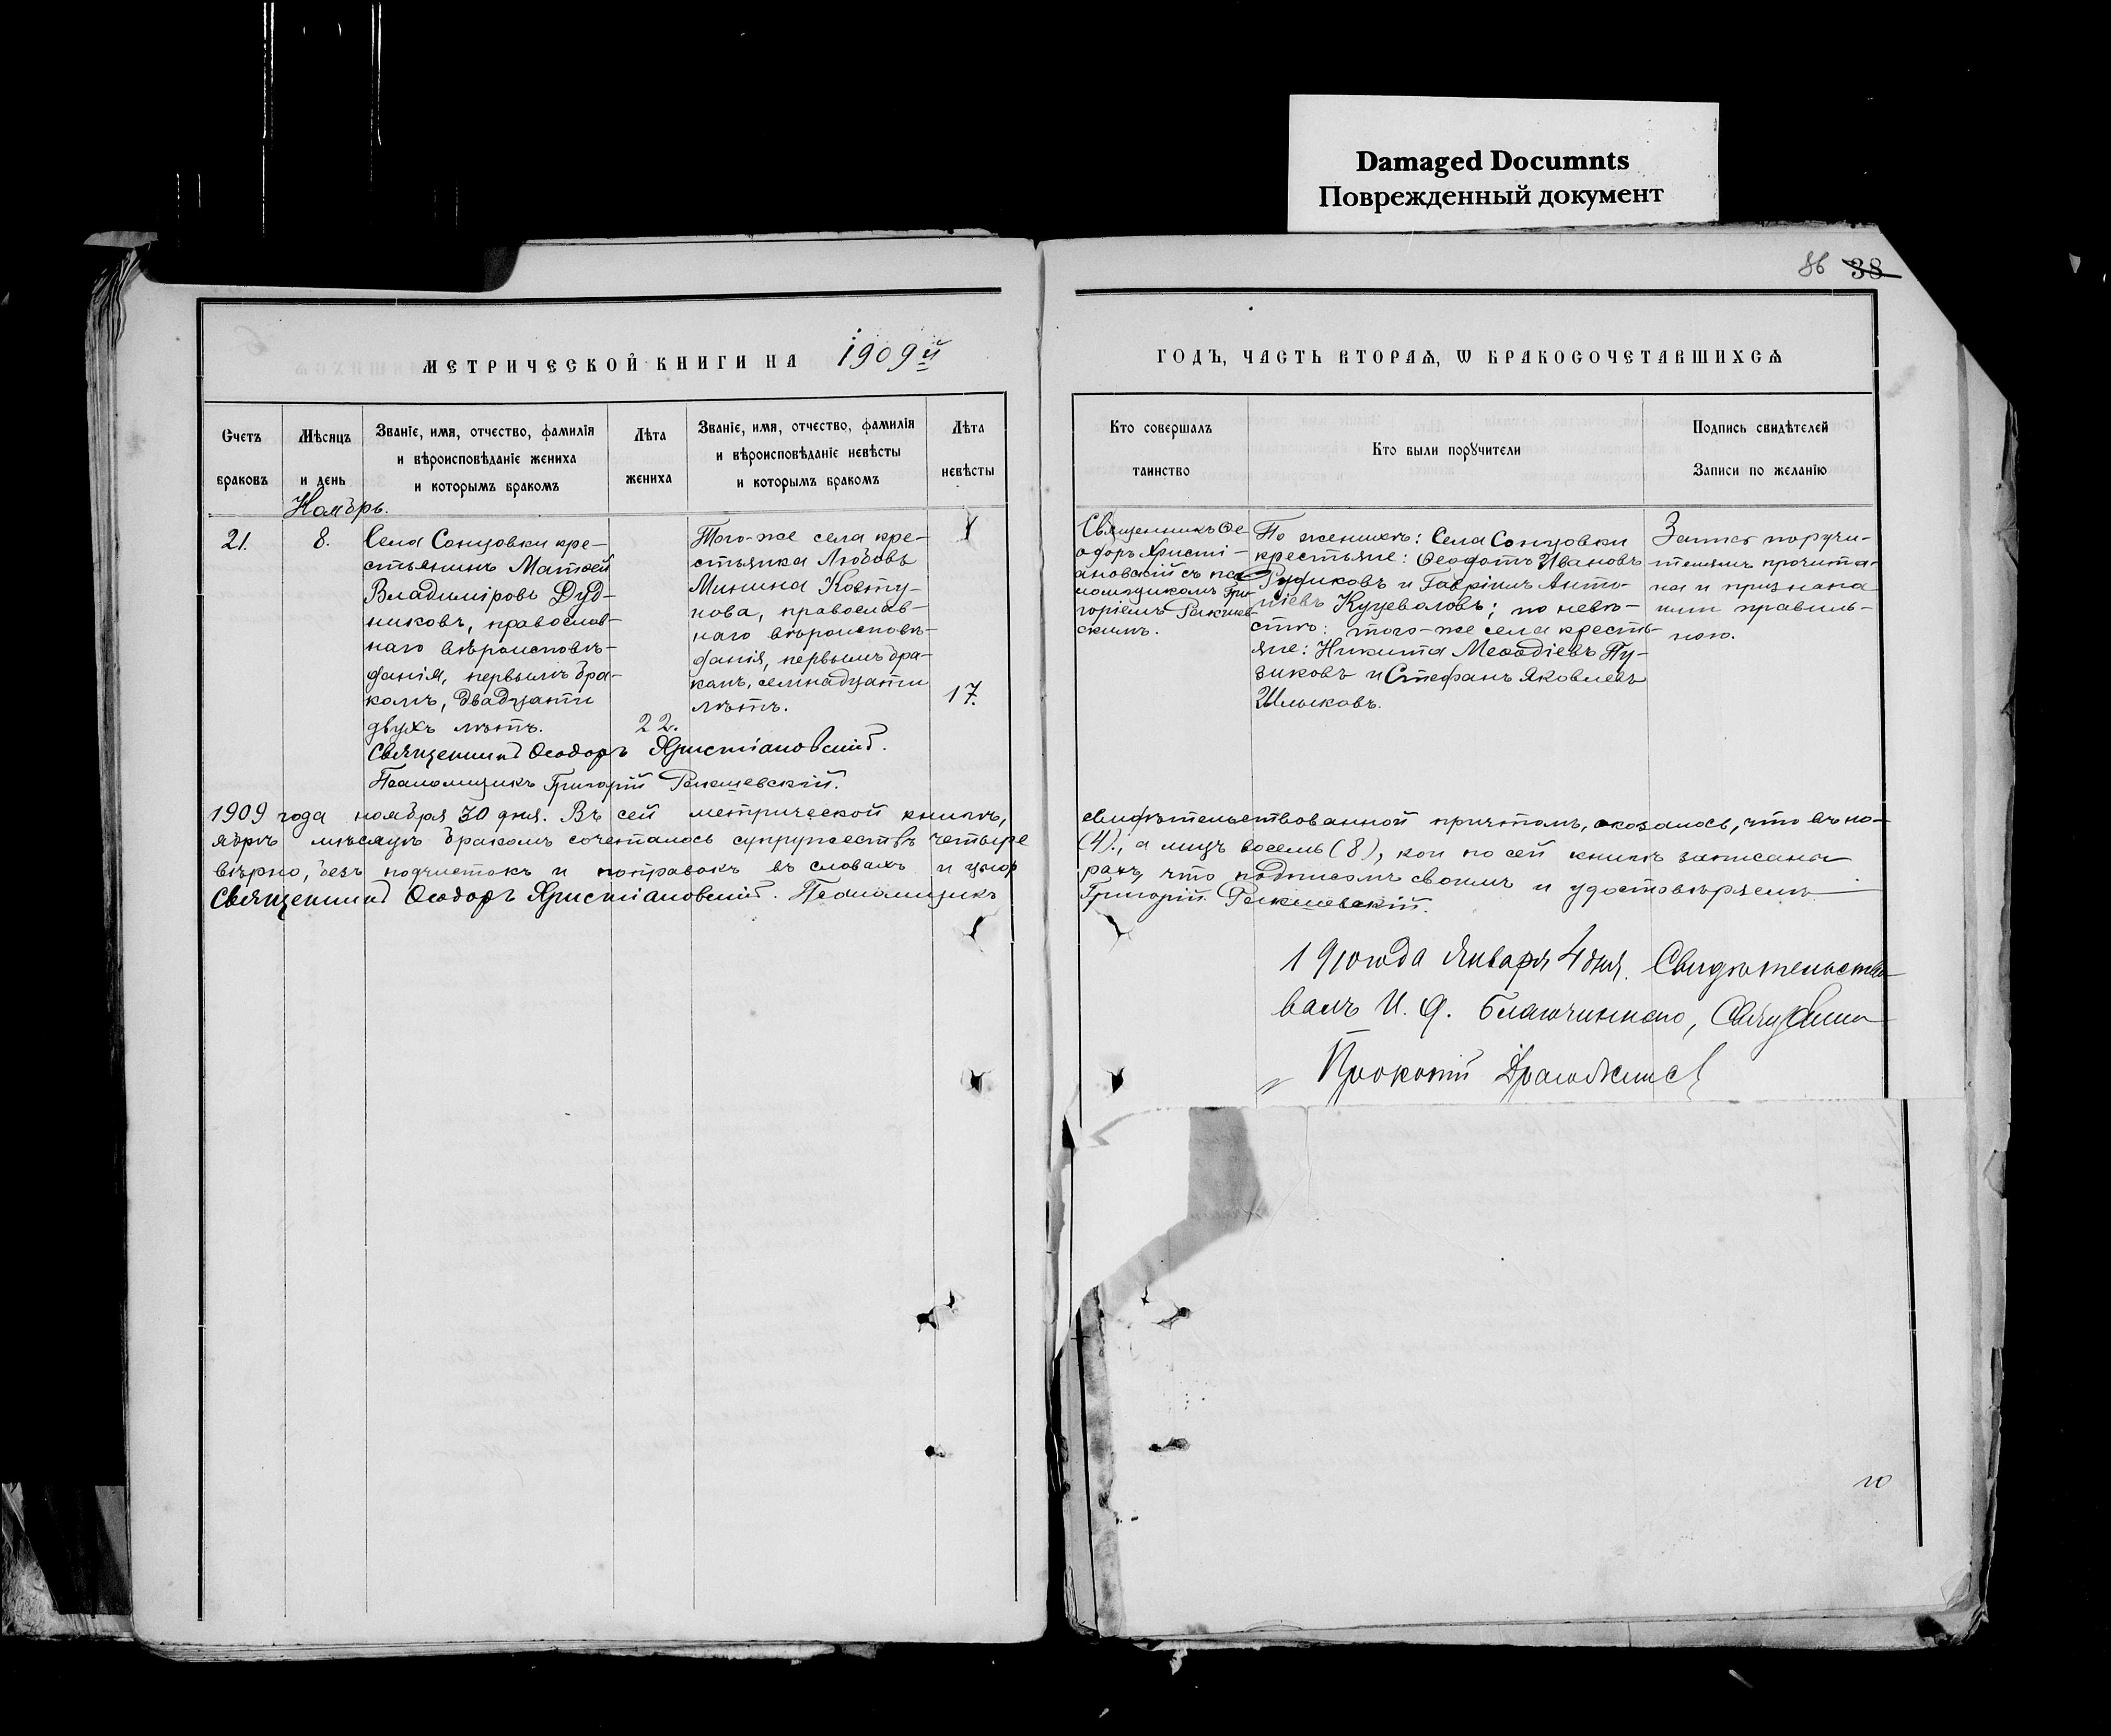 Damaged Documnts
Поврежденный документ
86 38
МЕТРИЧЕСКОЙ КНИГИ НА 1909й
ГОДЪ, ЧАСТЬ ВТОРАѦ, Ѡ БРАКОСОЧЕТАВШИХСѦ
Счетъ браковъ
Мѣсяцъ и день
Званіе, имя, отчество, фамилія
и вѣроисповѣданіе жениха
и которымъ бракомъ
Лѣта жениха
Званіе, имя, отчество, фамилія
и вѣроисповѣданіе невѣсты
и которымъ бракомъ
Лѣта невѣсты
Кто совершалъ таинство
Кто были поручители
Подпись свидѣтелей
Записи по желанію
Ноябрь.
21.
8.
Села Сонцовки кре-
стьянинъ Матѳей
Владиміровъ Дуд-
никовъ, православ-
наго вѣроисповѣ-
данія, первымъ бра-
комъ, двадцати
двухъ лѣтъ.
22.
Того-же села кре-
стьянка Любовь
Минина Ковту-
нова, православ-
наго вѣроисповѣ-
данія, первымъ бра-
комъ, семнадцати
лѣтъ.
17.
Священникъ Ѳе
одоръ Христі-
ановскій съ пса
ломщикомъ Гри-
горіемъ
скимъ.
По женихѣ: Села Сонцовки
крестьяне: Ѳеодотъ Ивановъ
и Гавріилъ Анто-
ніевъ Куцеваловъ; по невѣ-
стѣ: того-же села кресть-
яне: Никита Меѳодіевъ Пу-
зиковъ и Стефанъ Яковлевъ
Шлыковъ.
Запись поручи-
телямъ прочита-
на и признана
ими правиль-
ною.
Священникъ Ѳеодоръ Христіановскій.
Псаломщикъ Григорій
1909 года ноября 30 дня. Въ сей метрической книгѣ,
свидѣтельствованной причтомъ, оказалось, что въ но-
ябрѣ мѣсяцѣ бракомъ сочеталось супружествъ четыре
(4)., а лицъ восемь (8), кои по сей книгѣ записаны
вѣрно, безъ подчистокъ и поправокъ въ словахъ и циф
рахъ, что подписомъ своимъ и удостовѣряемъ
Священникъ Ѳеодоръ Христіановскій. Псаломщикъ
Григорій
1910 года Января 4 дня. Свидѣтельство
валъ И. д. Благочиннаго, Священникъ
Прокопій